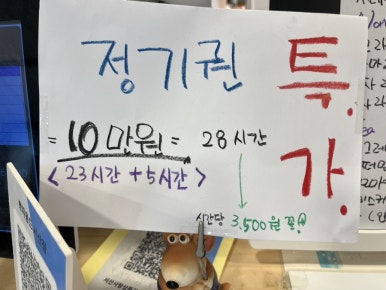 정기권 특.가.
= 10만원 = 28시간
< 23시간 + 5시간 >
시간당 3,500원 꼴